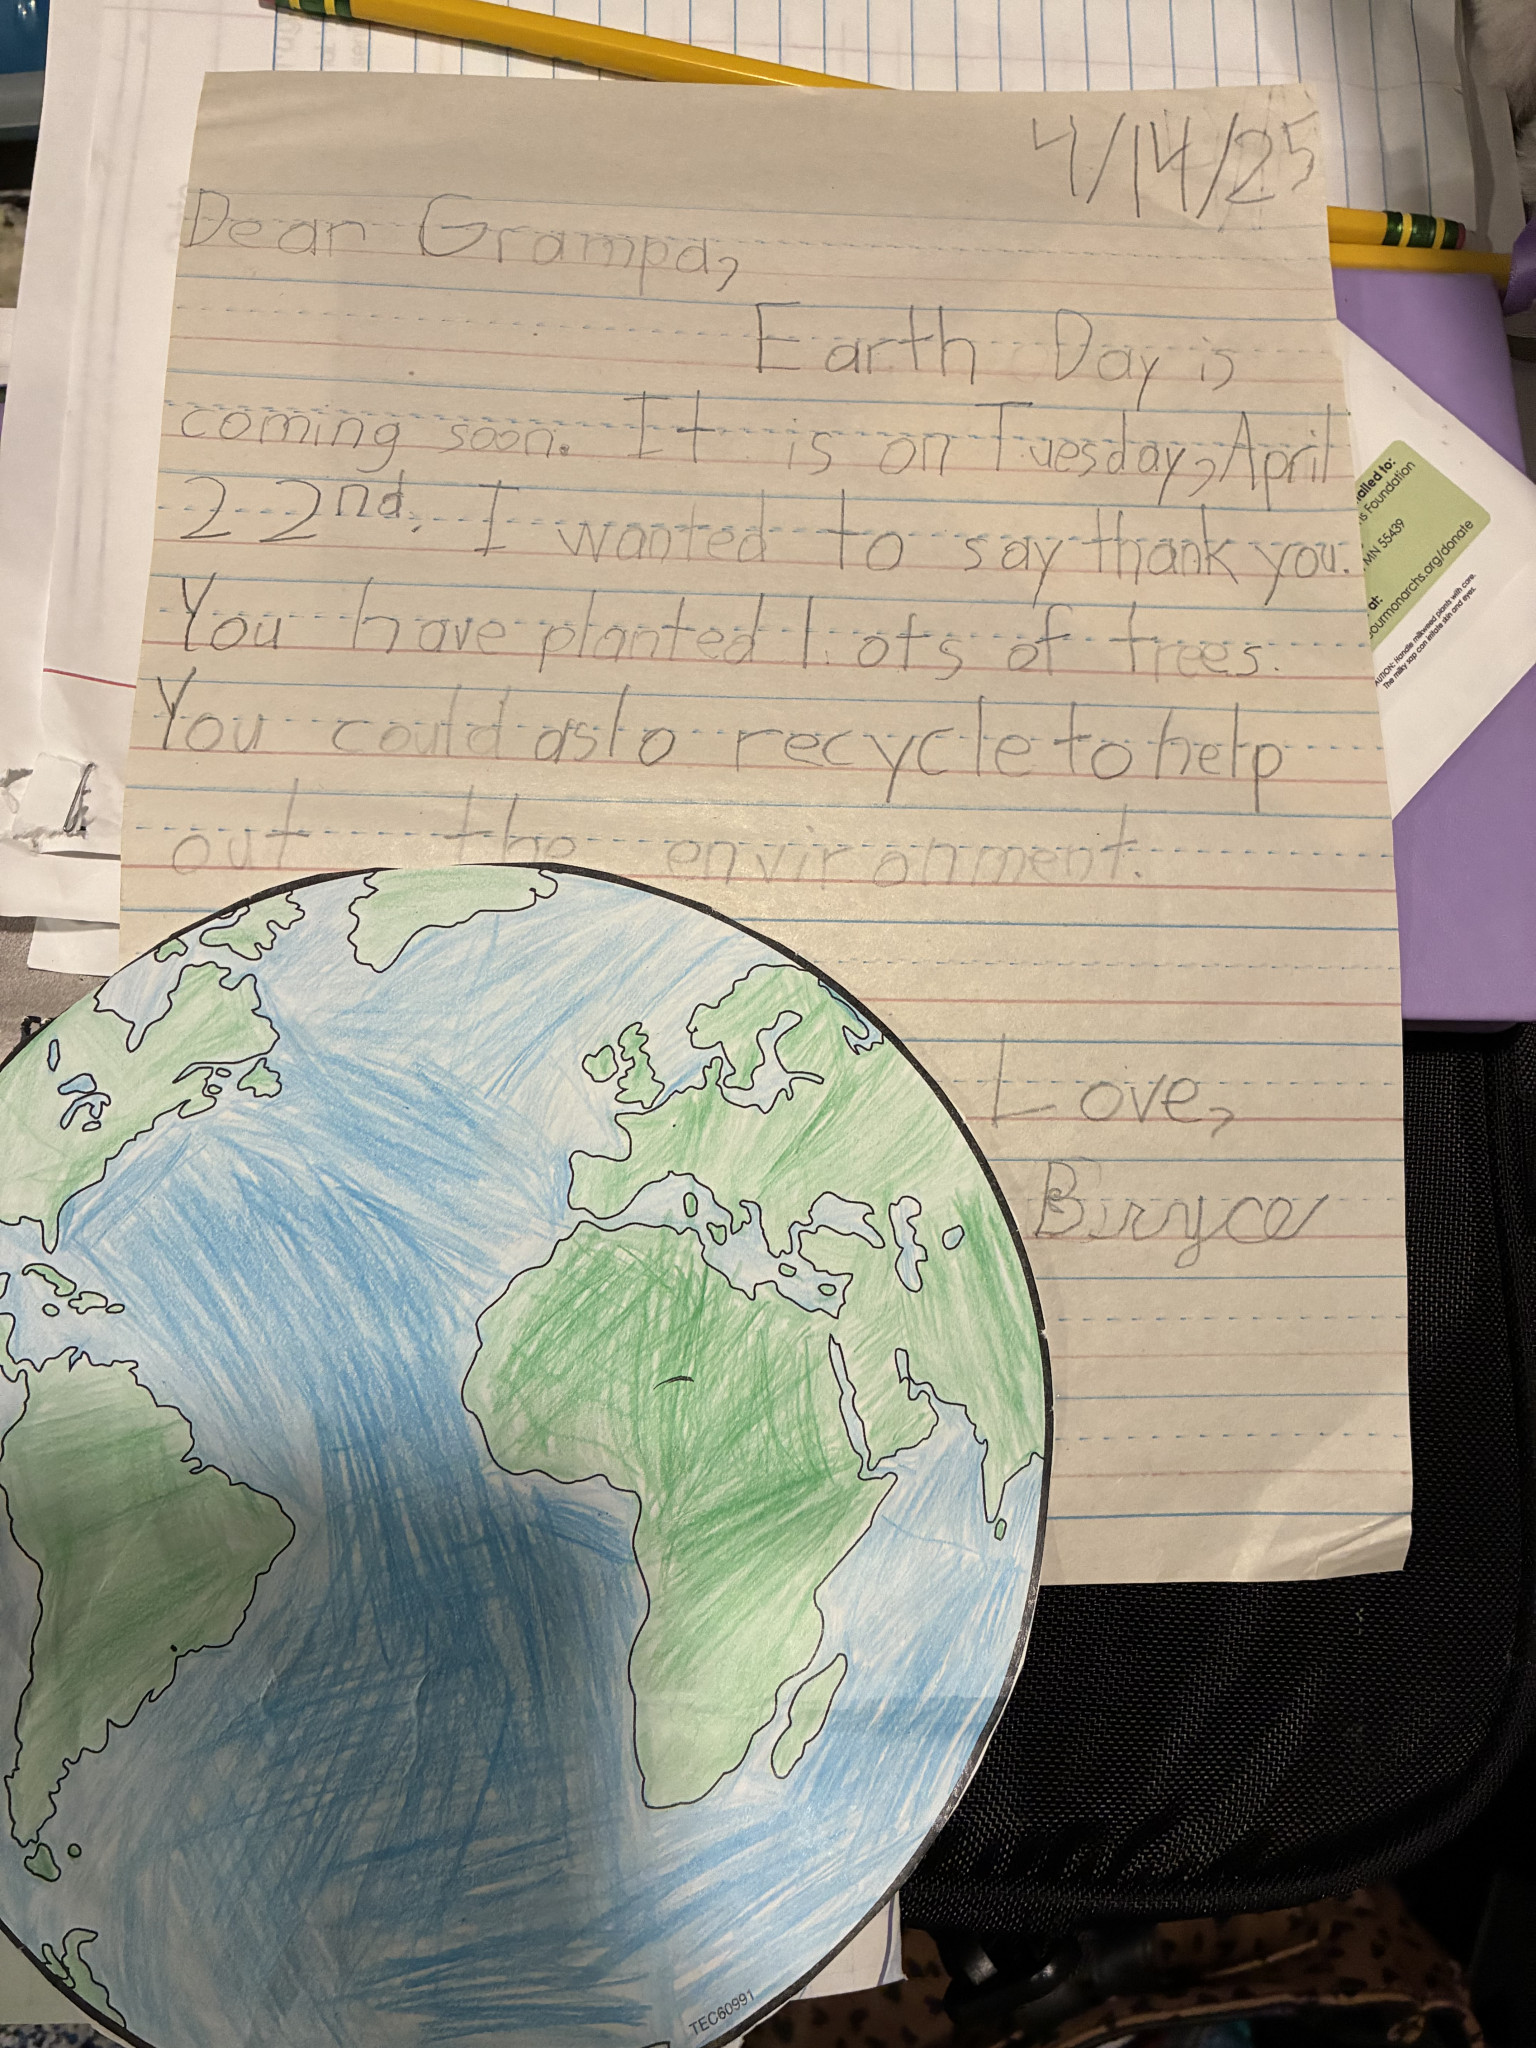 4/14/25
Dear Grampa,
Earth Day is
coming soon. It is on Tuesday, April
22nd. I wanted to say thank you.
You have planted lots of trees.
You could aslo recycle to help
out the environment.
Love,
Bryce
ailed to:
is Foundation
MN 55439
at:
ourmonarchs.org/donate
AUTION: Handle milkweed plants with care.
The milky sap can irritate skin and eyes.
TEC60991